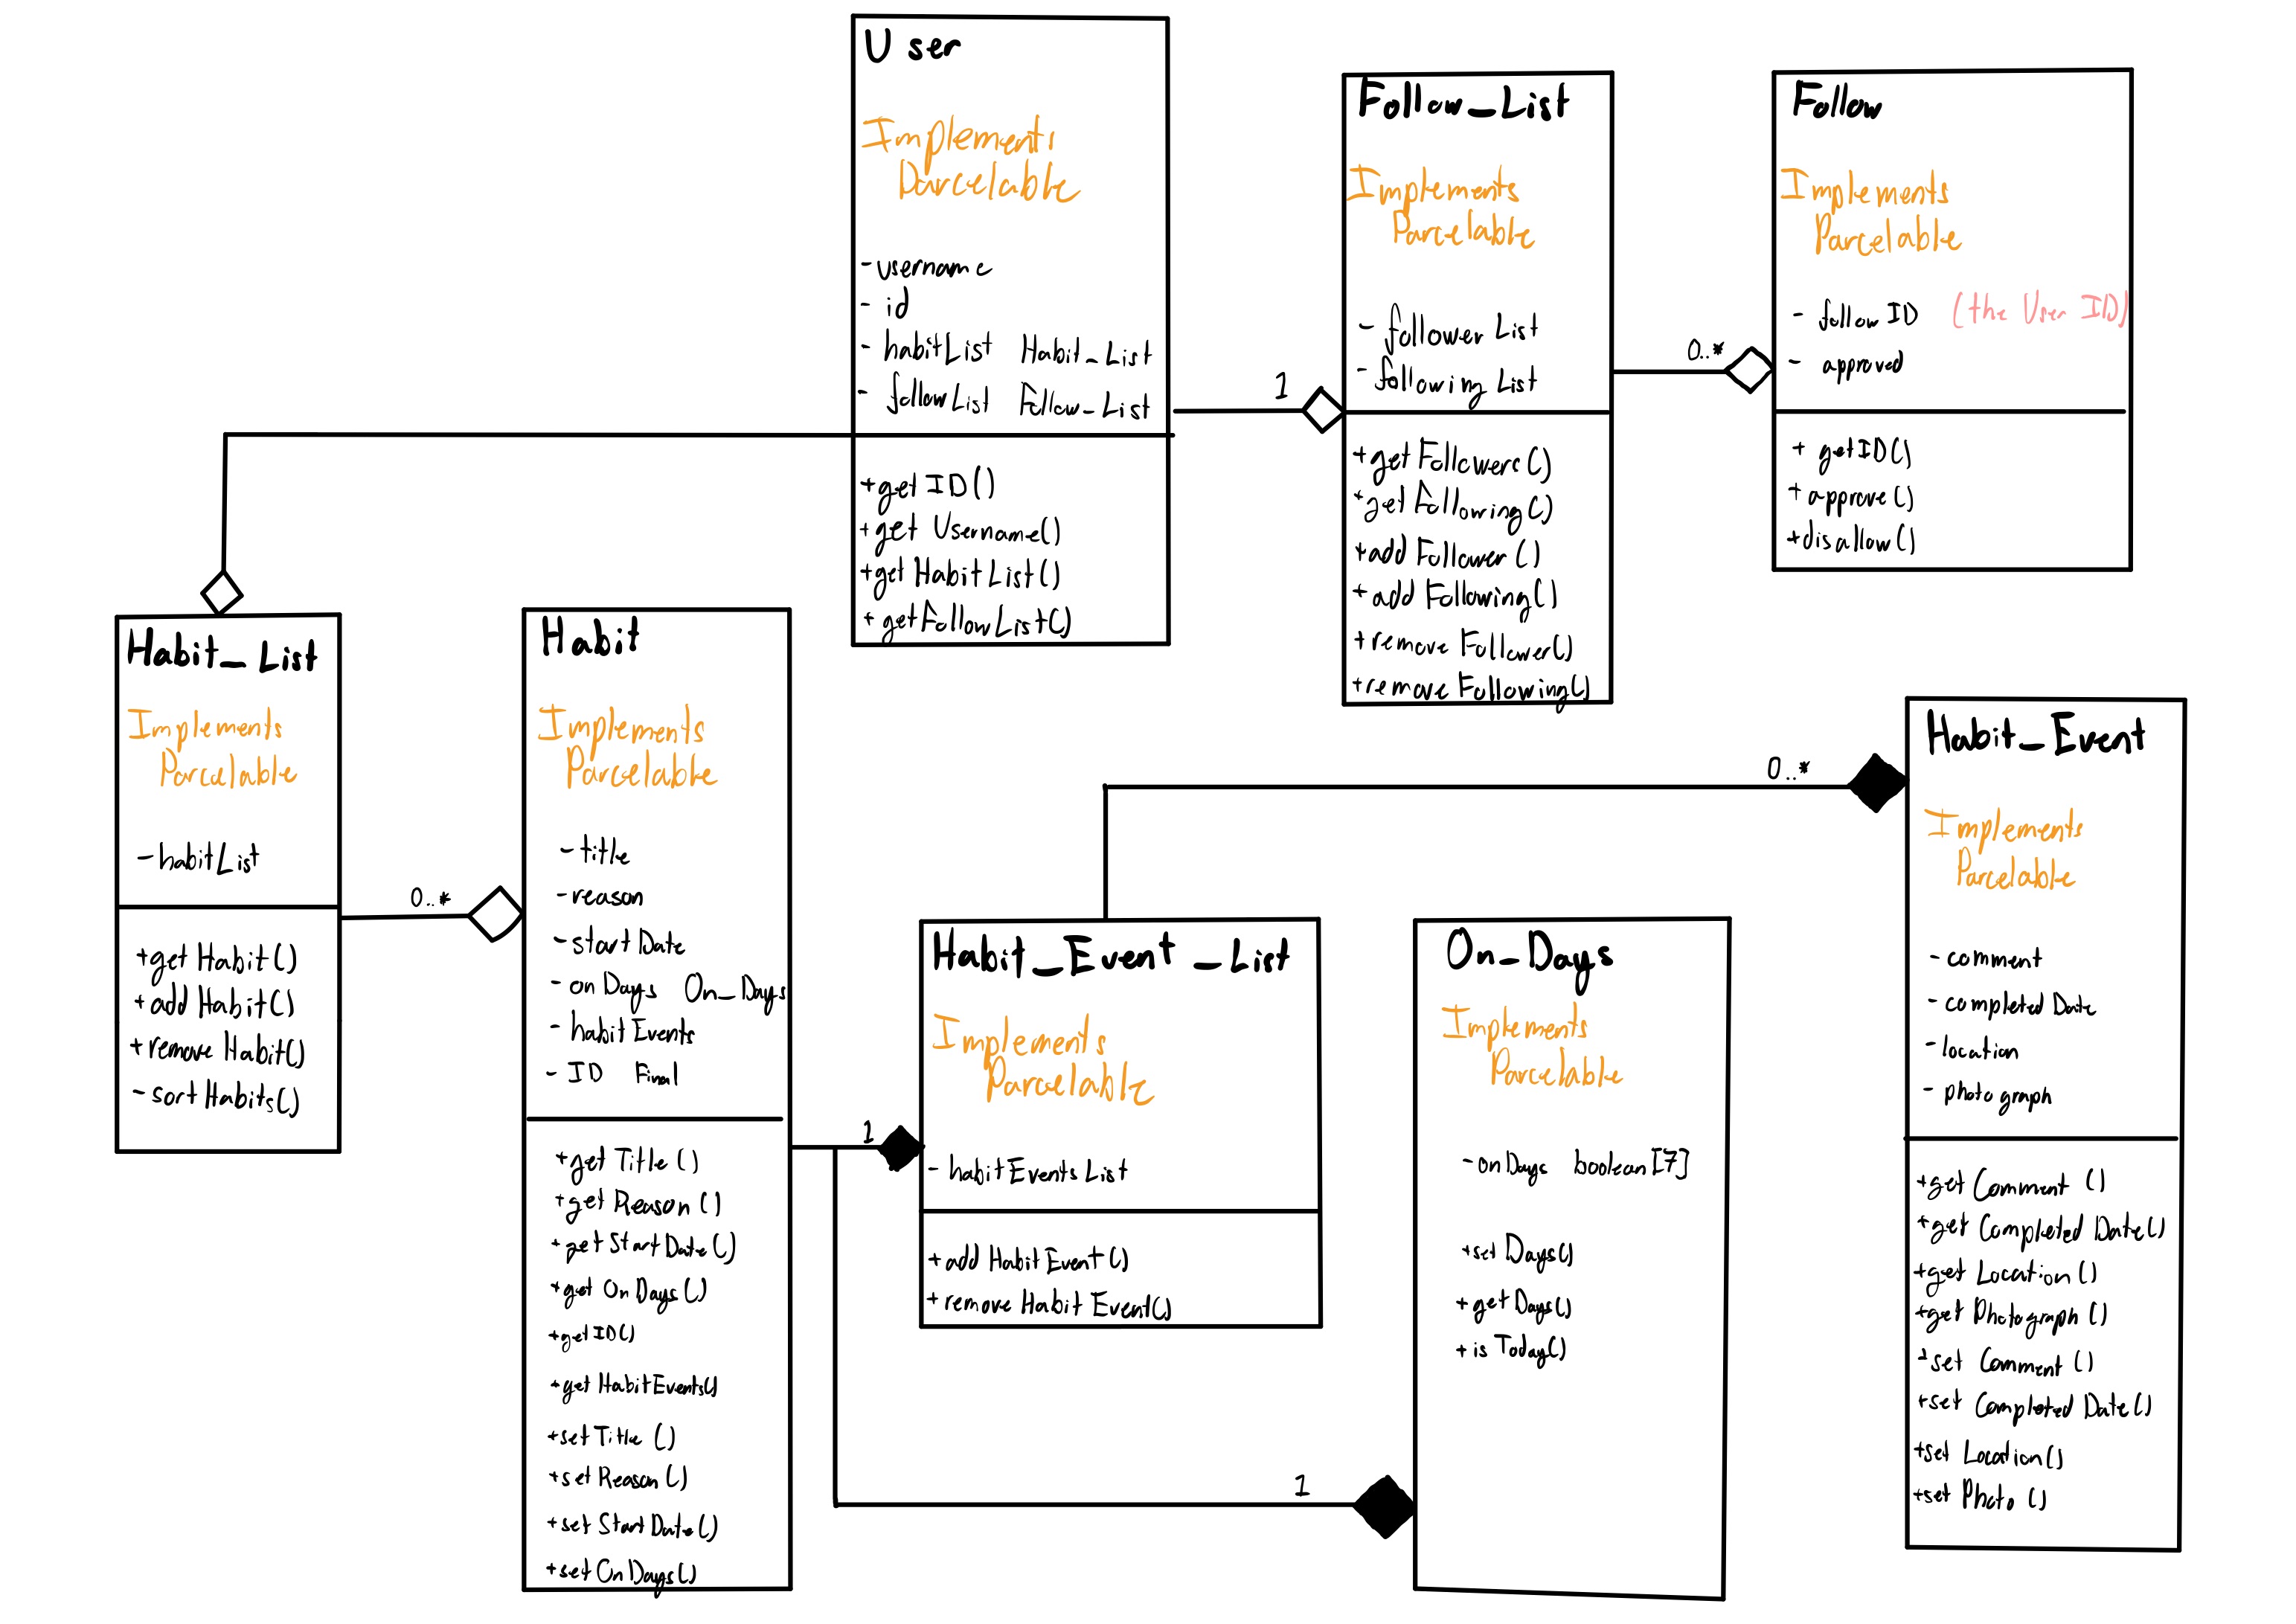 User
Implements
Parcelable
- username
- id
- habitList Habit_List
- followList Follow_List
+getID()
+get Username()
+get HabitList()
+ getFollowList()
Follow_List
Implements
Parcelable
- follower List
- following List
+get Followers()
+get Following()
+add Follower()
+ add Following()
+remove Follower()
+remove Following()
Follow
Implements
Parcelable
- followID (the User ID)
- approved
+ getID()
+ approve()
+disallow()
1
0..*
Habit_List
Implements
Parcelable
- habitList
+get Habit()
+ add Habit()
+remove Habit()
- sort Habits()
0..*
Habit
Implements
Parcelable
- title
- reason
- start Date
- on Days On_Days
- habit Events
- ID Final
+get Title ()
+get Reason ()
+get Start Date ()
+get On Days ()
+get ID()
+get HabitEvents()
+set Title ()
+set Reason ()
+set Start Date ()
+set On Days ()
1
Habit_Event_List
Implements
Parcelable
- habitEvents List
+ add Habit Event()
+ remove Habit Event()
On_Days
Implements
Parcelable
- onDays boolean[7]
+set Days()
+ get Days()
+ is Today()
1
0..*
Habit_Event
Implements
Parcelable
- comment
- completed Date
- location
- photograph
+get Comment ()
+get Completed Date()
+get Location ()
+get Photograph ()
+set Comment ()
+set Completed Date()
+set Location()
+set Photo ()